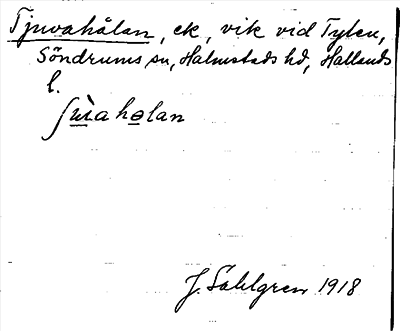 Tjuvahålan, ek, vik vid Tylen,
Söndrums sn, Halmstads hd, Hallands
l.
ʃùvahalan
J. Sahlgren 1918